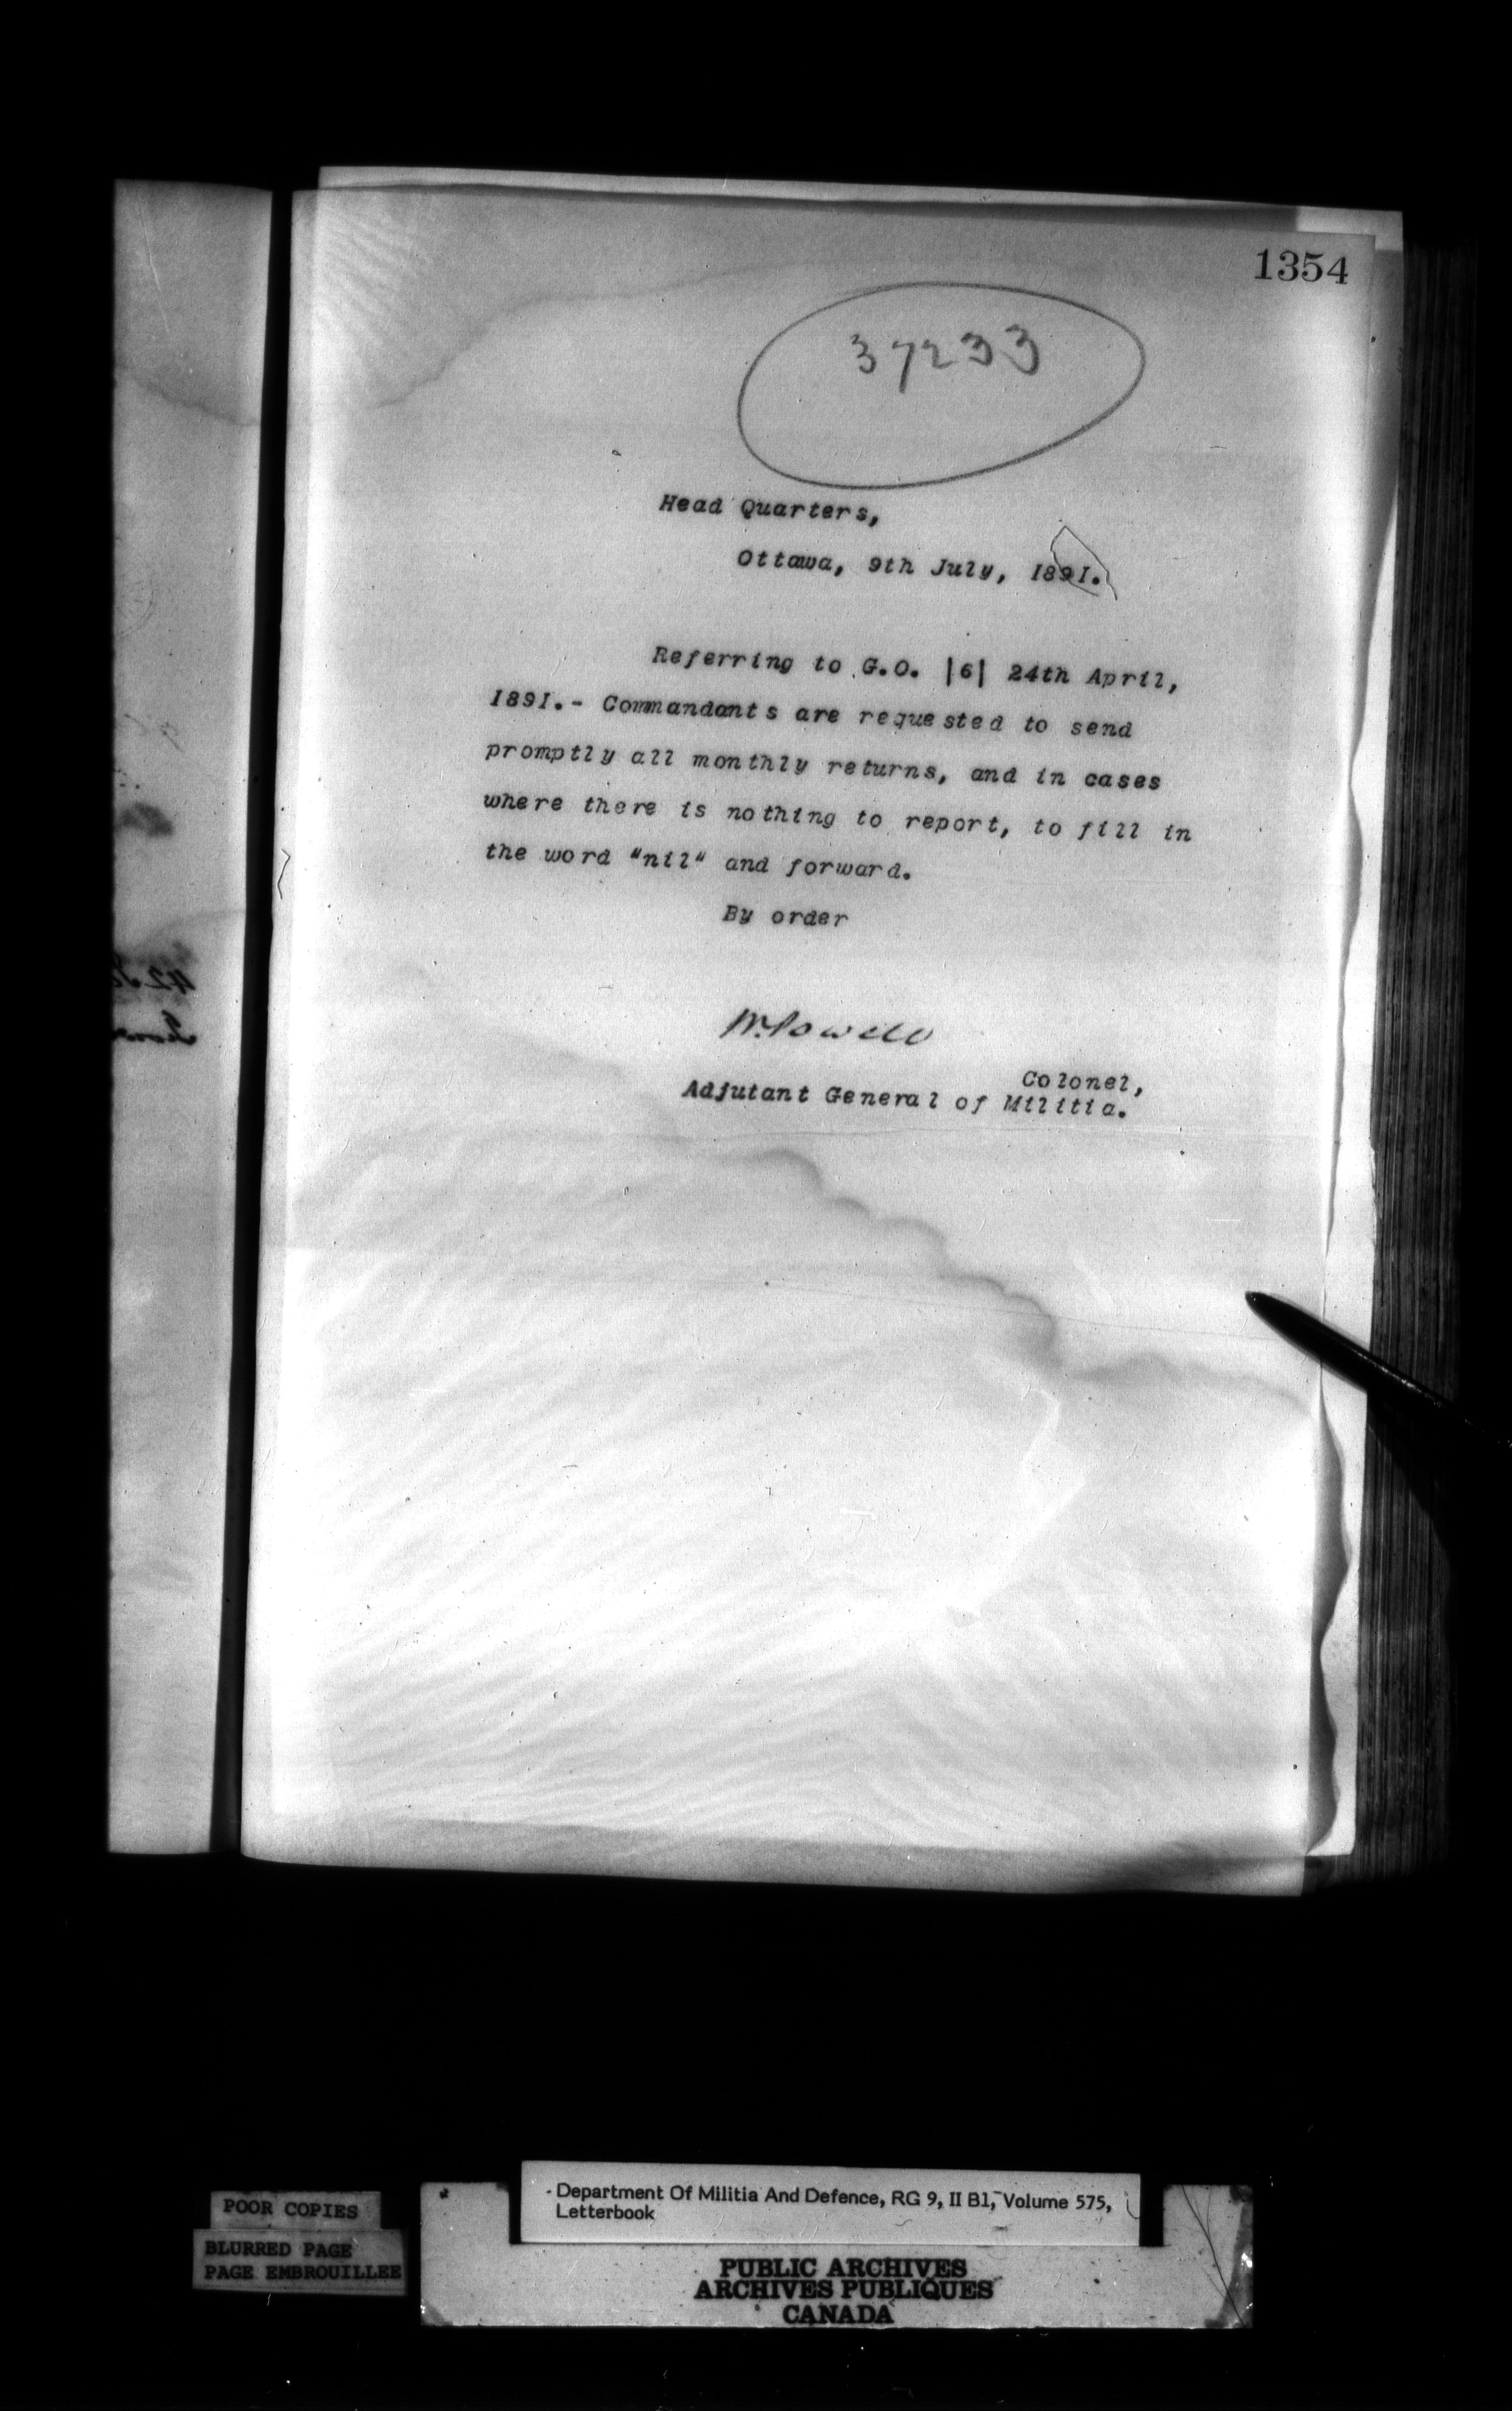 1354
37233
Head Quarters,
Ottawa, 9th July, 1891.
Referring to G.O. |6| 24th April,
1891.- Commandants are requested to send
promptly all monthly returns, and in cases
where there is nothing to report, to fill in
the word "nil" and forward.
By order
W. Powell
Colonel,
Adjutant General of Militia.
POOR COPIES
BLURRED PAGE
PAGE EMBROUILLEE
Department Of Militia And Defence, RG 9, II B1, Volume 575,
Letterbook
PUBLIC ARCHIVES
ARCHIVES PUBLIQUES
CANADA